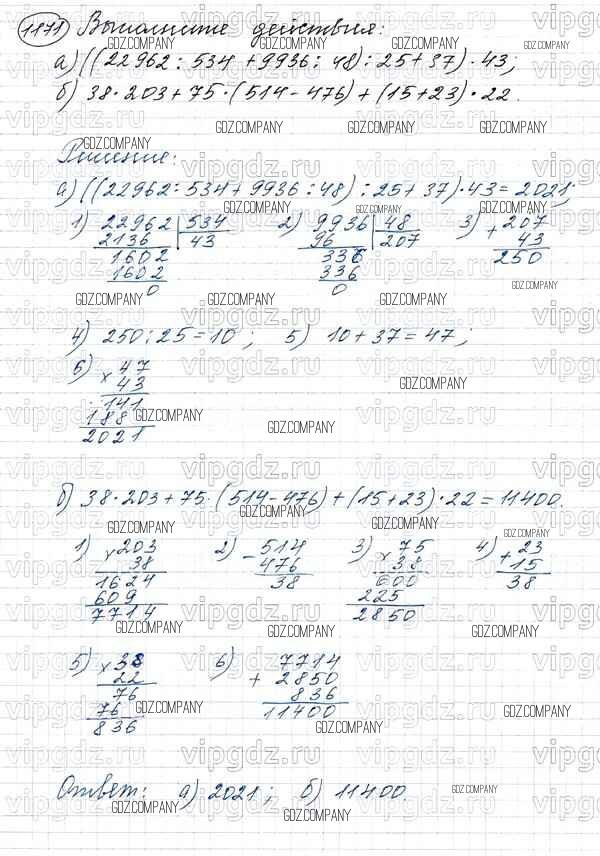 1171) Выполните действия:
а) ((22962 : 534 + 9936 : 48) : 25 + 37) · 43;
б) 38 · 203 + 75 · (514 - 476) + (15 + 23) · 22.
Решение:
а) ((22962 : 534 + 9936 : 48) : 25 + 37) · 43 = 2021;
1) 22962 | 534
2136 | 43
1602
1602
0
2) 9936 | 48
96 | 207
336
336
0
3) + 207
43
250
4) 250 : 25 = 10; 5) 10 + 37 = 47;
6) × 47
43
141
188
2021
б) 38 · 203 + 75 · (514 - 476) + (15 + 23) · 22 = 11400.
1) × 203
38
1624
609
7714
2) - 514
476
38
3) × 75
38
600
225
2850
4) + 23
15
38
5) × 38
22
76
76
836
6) 7714
+ 2850
836
11400
Ответ: а) 2021; б) 11400.
vipgdz.ru
GDZ.COMPANY